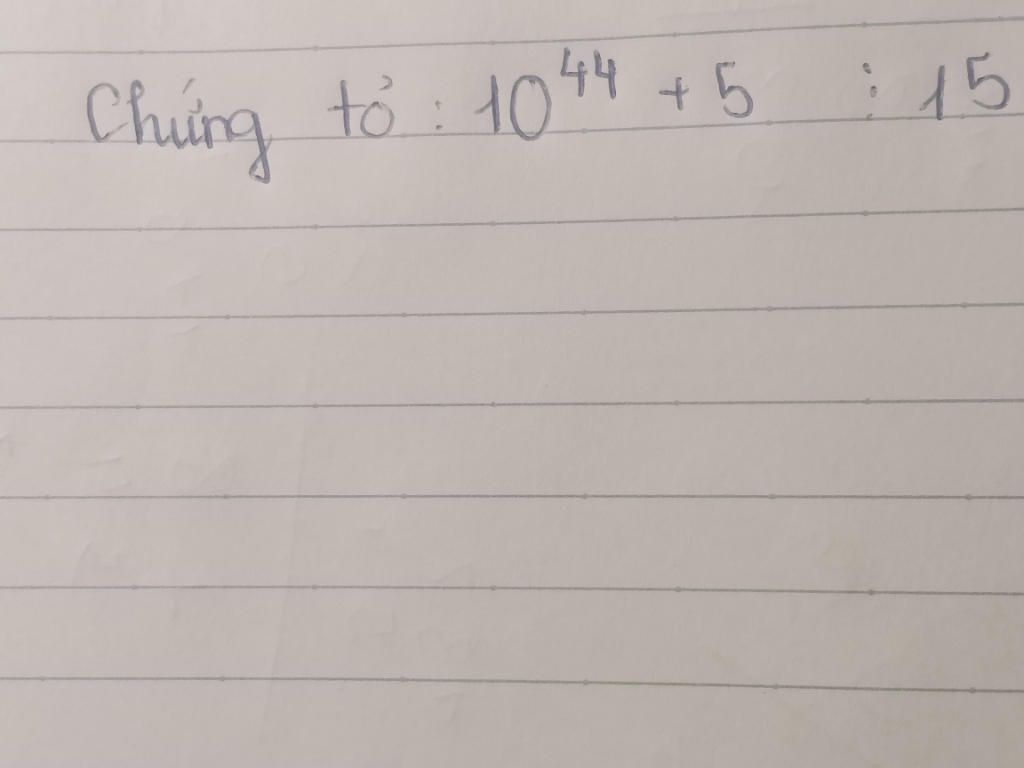 Chứng tỏ : 10⁴⁴ + 5 ⋮ 15